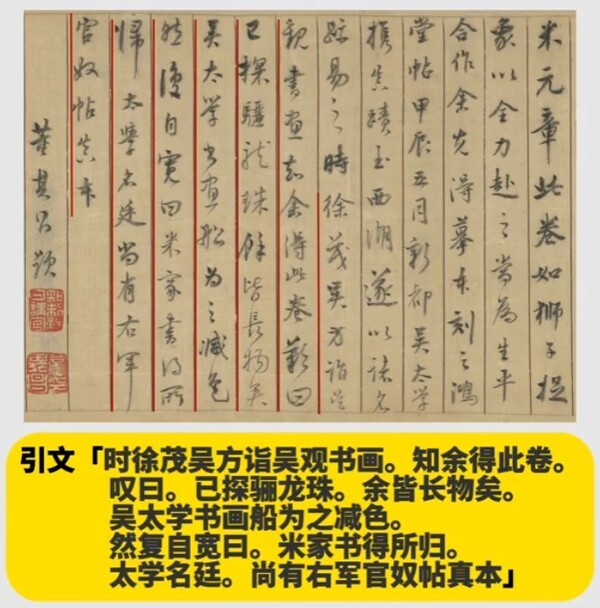 米元章此卷如獅子捉
象以全力赴之當為生平
合作余先得摹本刻之鴻
堂帖甲辰五月新都吳太學
攜真蹟至西湖遂以諸名
跡易之時徐茂吳方詣吳
觀書畫知余得此卷歎曰
已探驪龍珠餘皆長物矣
吳太學書畫船為之減色
然復自寬曰米家書得所
歸太學名廷尚有右軍
官奴帖真本
董其昌題
引文「时徐茂吴方诣吴观书画。知余得此卷。
叹曰。已探骊龙珠。余皆长物矣。
吴太学书画船为之减色。
然复自宽曰。米家书得所归。
太学名廷。尚有右军官奴帖真本」